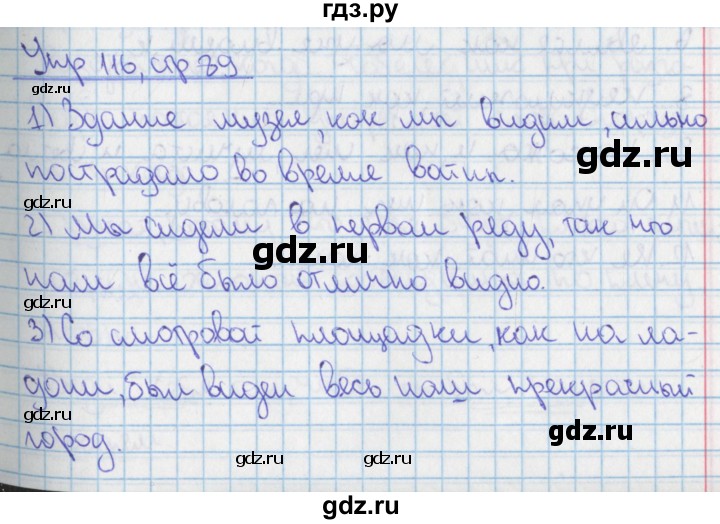 гдз.ру
Упр 116, стр 89
gdz.ru gdz.ru
1) Здание музея, как мы видим, сильно
пострадало во время войны.
gdz.ru gdz.ru
2) Мы сидели в первом ряду, так что
gdz.ru
нам всё было отлично видно.
gdz.ru gdz.ru
3) Со смотровой площадки, как на ла-
дони, был виден весь наш прекрасный
gdz.ru gdz.ru
город.
gdz.ru gdz.ru
gdz.ru
gdz.ru